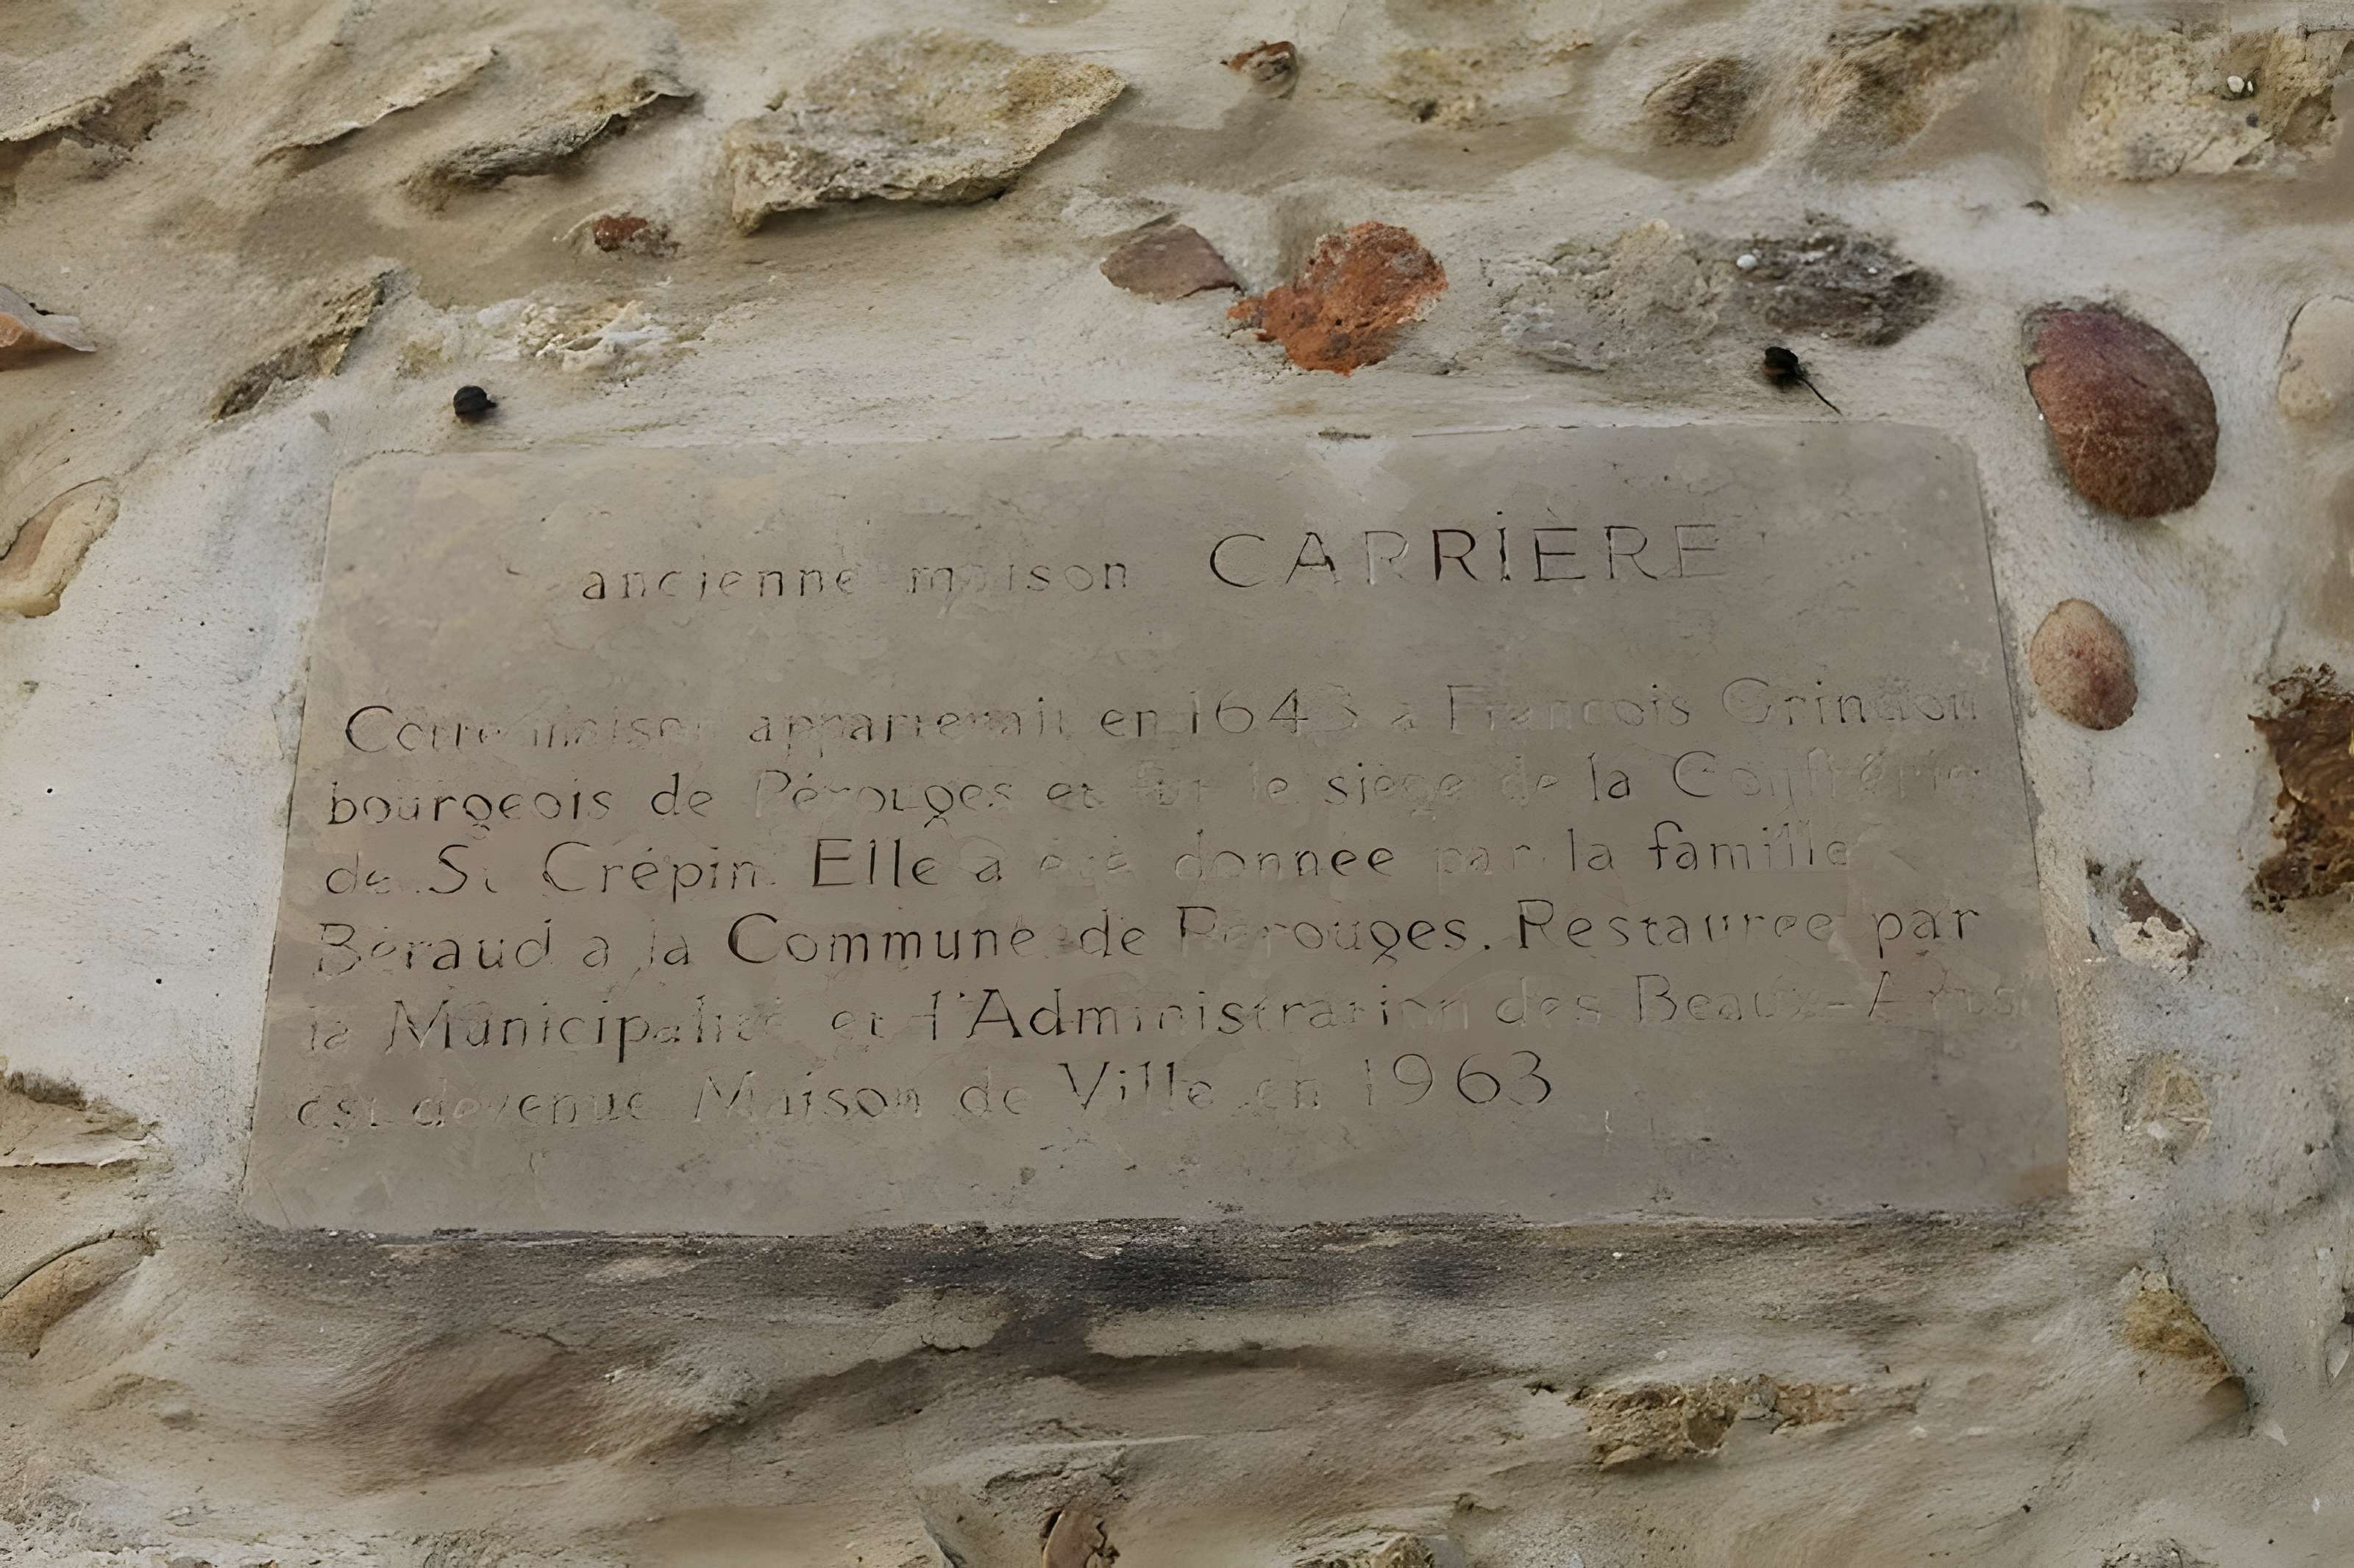 ancienne maison CARRIÈRE
Cette maison appartenait en 1643 a François Grindon
bourgeois de Pérouges et fut le siège de la Confrérie
de St Crépin. Elle a été donnée par la famille
Béraud a la Commune de Pérouges. Restaurée par
la Municipalité et l'Administration des Beaux-Arts
est devenue Maison de Ville en 1963